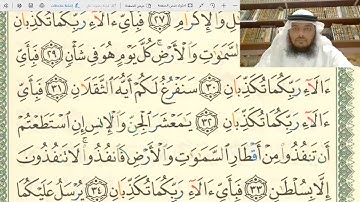 وَٱلْإِكْرَامِ ٢٧ فَبِأَيِّ ءَالَآءِ رَبِّكُمَا تُكَذِّبَانِ
ٱلسَّمَٰوَٰتِ وَٱلْأَرْضِ كُلَّ يَوْمٍ هُوَ فِي شَأْنٍ ٢٩ فَبِأَيِّ
ءَالَآءِ رَبِّكُمَا تُكَذِّبَانِ ٣٠ سَنَفْرُغُ لَكُمْ أَيُّهَ ٱلثَّقَلَانِ ٣١ فَبِأَيِّ
ءَالَآءِ رَبِّكُمَا تُكَذِّبَانِ ٣٢ يَٰمَعْشَرَ ٱلْجِنِّ وَٱلْإِنسِ إِنِ ٱسْتَطَعْتُمْ
أَن تَنفُذُوا۟ مِنْ أَقْطَارِ ٱلسَّمَٰوَٰتِ وَٱلْأَرْضِ فَٱنفُذُوا۟ لَا تَنفُذُونَ
إِلَّا بِسُلْطَٰنٍ ٣٣ فَبِأَيِّ ءَالَآءِ رَبِّكُمَا تُكَذِّبَانِ ٣٤ يُرْسَلُ عَلَيْكُمَا